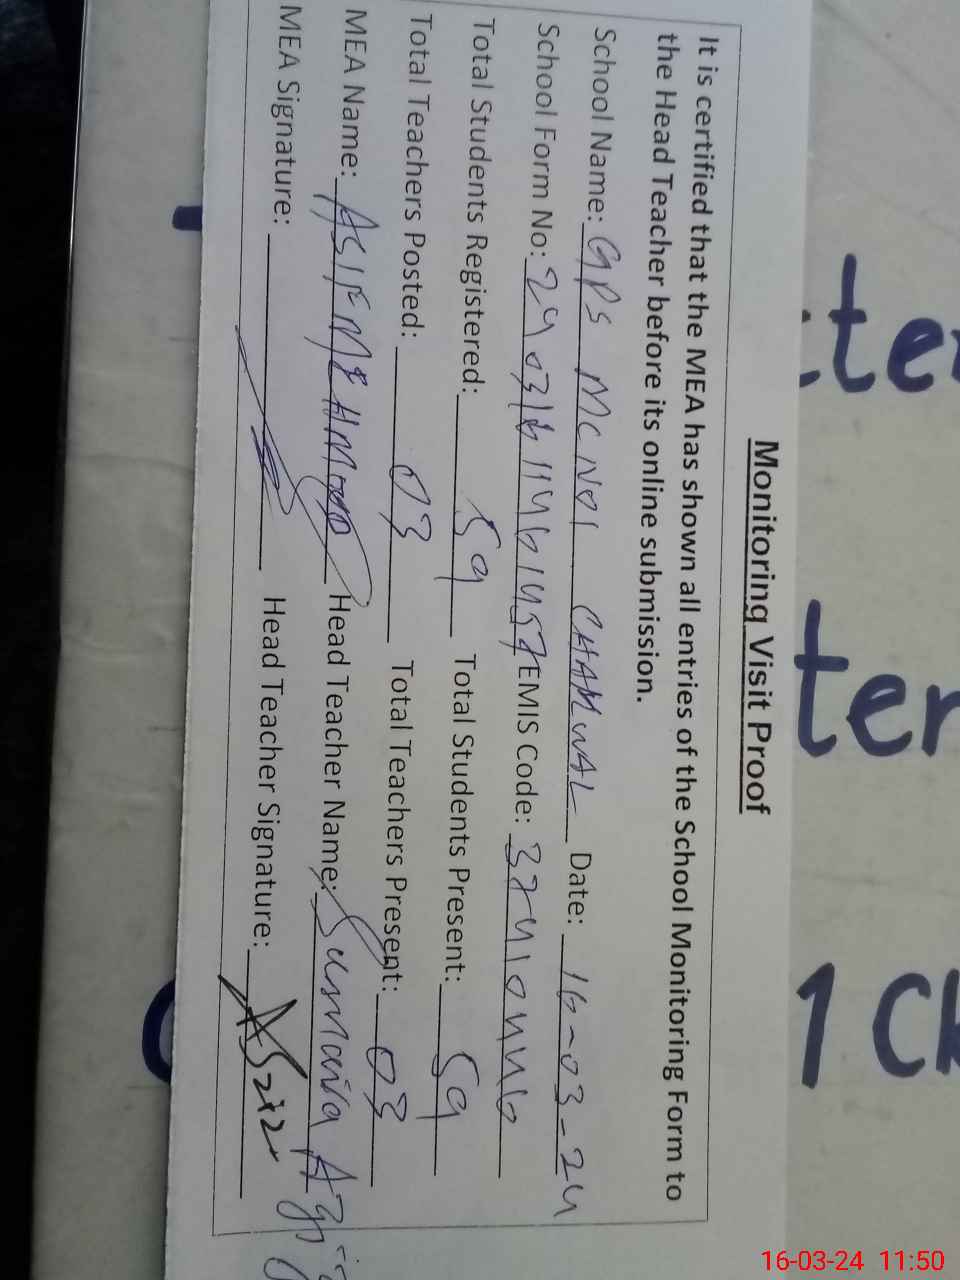 Monitoring Visit Proof
It is certified that the MEA has shown all entries of the School Monitoring Form to
the Head Teacher before its online submission.
School Name: GPS MCNO1 CHAKWAL Date: 16-03-24
School Form No: EMIS Code: 37410446
Total Students Registered: 59 Total Students Present: 59
Total Teachers Posted: 03 Total Teachers Present: 03
MEA Name: ASIF MEHMOOD Head Teacher Name:
MEA Signature: Head Teacher Signature:
ter
1 Cl
16-03-24 11:50